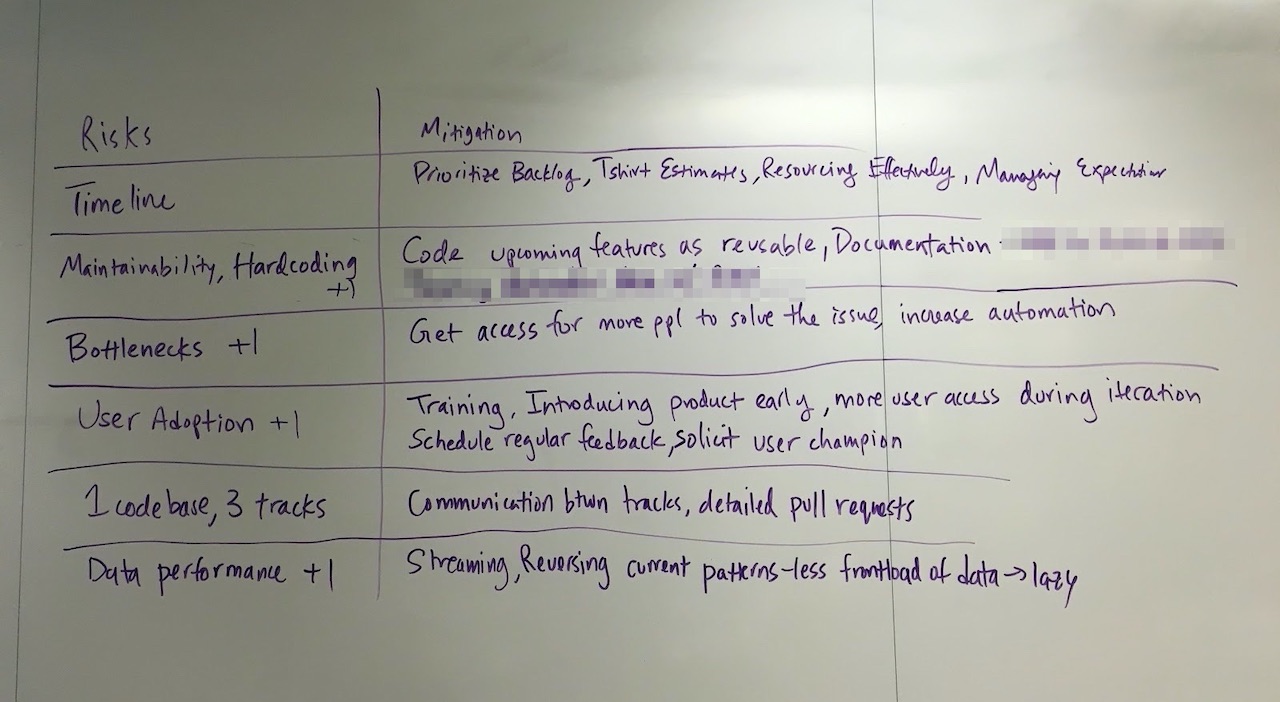 Risks
Mitigation
Timeline
Prioritize Backlog, Tshirt Estimates, Resourcing Effectively, Managing Expectation
Maintainability, Hardcoding
+1
Code upcoming features as reusable, Documentation
Bottlenecks +1
Get access for more ppl to solve the issue, increase automation
User Adoption +1
Training, Introducing product early, more user access during iteration
Schedule regular feedback, solicit user champion
1 codebase, 3 tracks
Communication btwn tracks, detailed pull requests
Data performance +1
Streaming, Reversing current patterns-less frontload of data→lazy